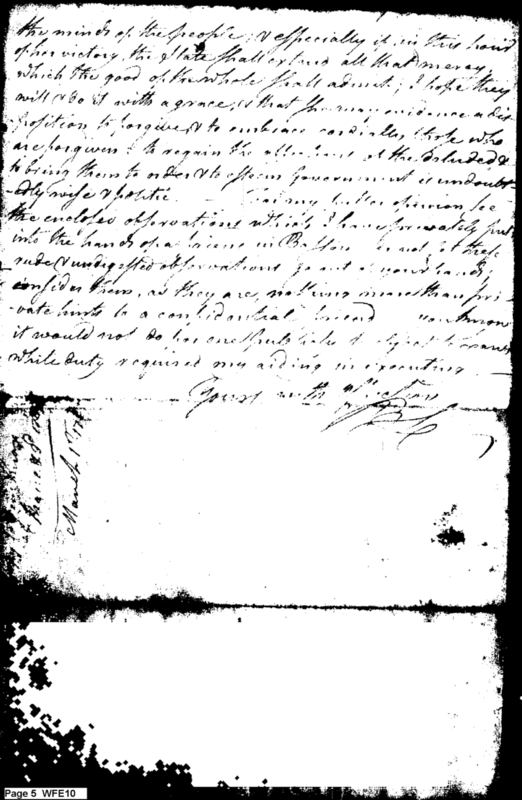 the minds of the people; & especially if in this hour
of her victory, the State shall extend all that mercy,
which the good of the whole shall admit; I hope they
will & do it with a grace, & that she may evidence a dis-
position to forgive, & to embrace cordially those who
are forgiven: to regain the attachment of the deluded &
to bring them to order & to esteem Government is undoubt-
edly wise & politic. my opinion, see
the enclosed observations which I have privately put
into the hands of a friend in Boston not let these
rude & undigested observations go out of your hands;
consider them, as they are, nothing more than pri-
vate hints to a confidential friend know
it would not do for one publickly to object to
while duty required my aiding in executing
Yours with affection
March 1st
Page 5 WFE10